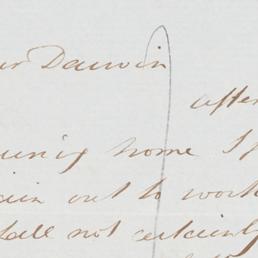 ear Darwin
after
uring home I
ain out to work
hall not certainly